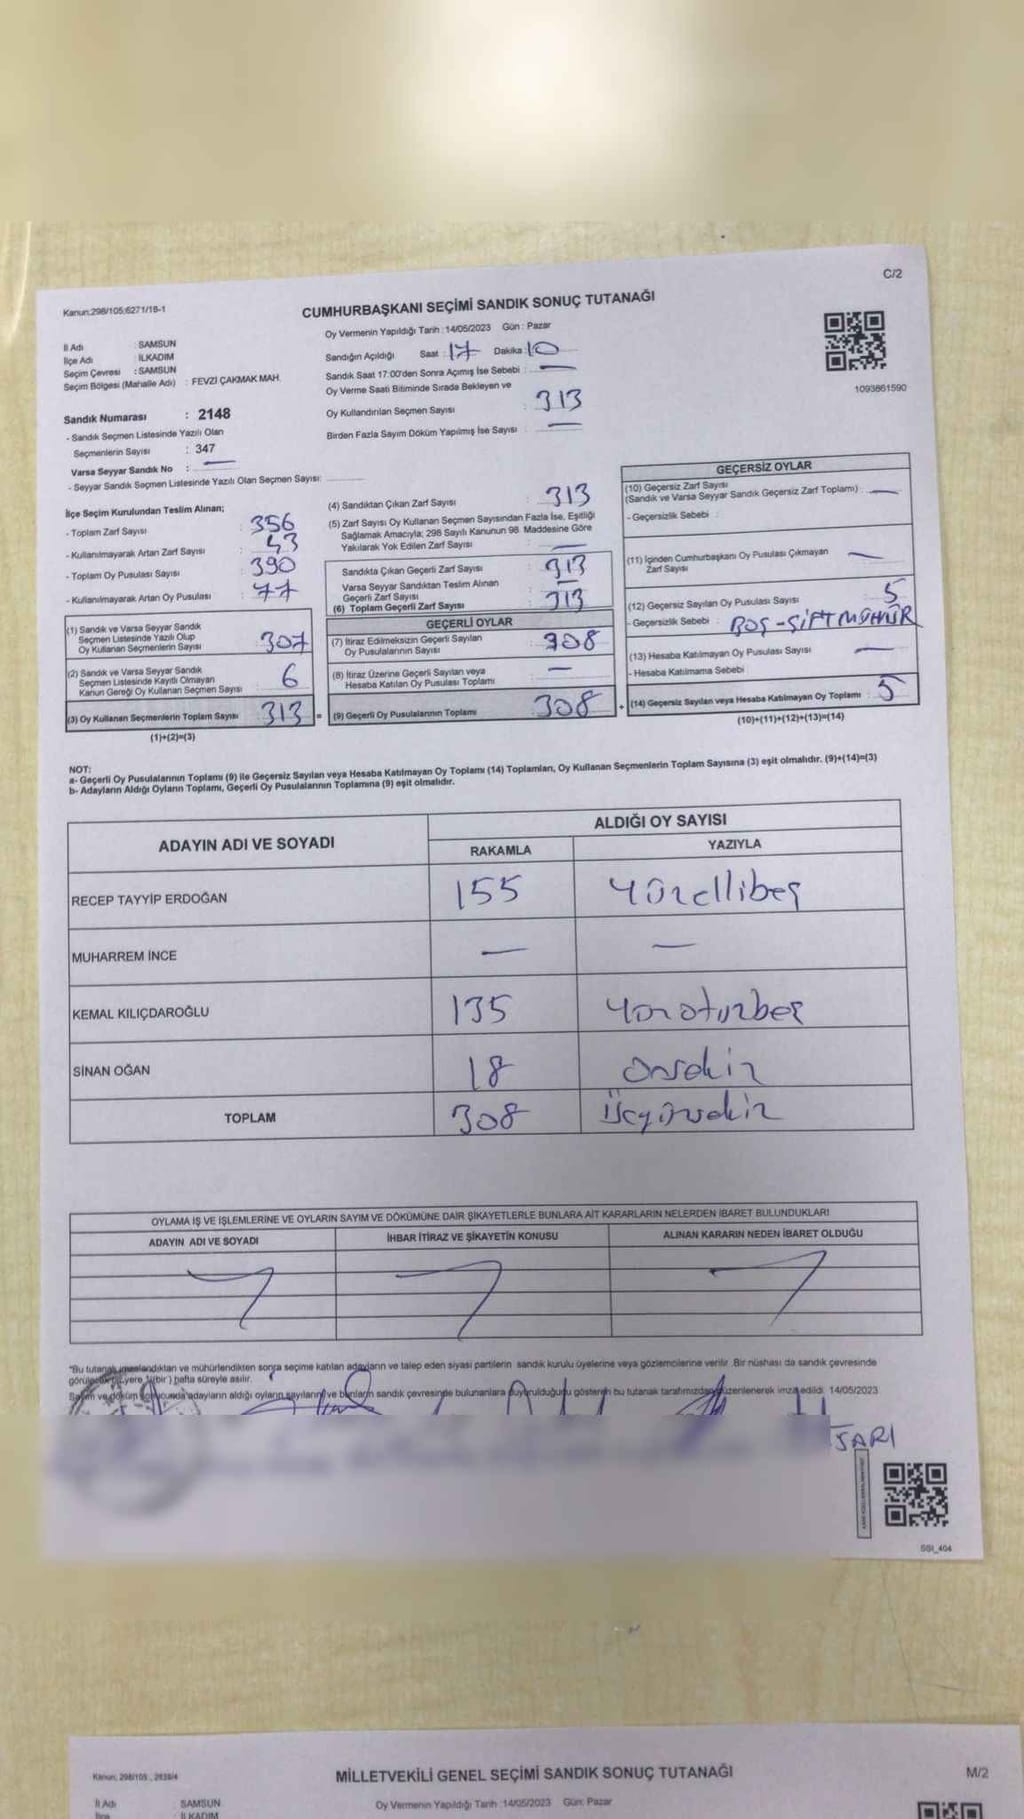 C/2
Kanun:298/105;6271/18-1
CUMHURBAŞKANI SEÇİMİ SANDIK SONUÇ TUTANAĞI
Oy Vermenin Yapıldığı Tarih : 14/05/2023 Gün : Pazar
İl Adı : SAMSUN
İlçe Adı : İLKADIM
Seçim Çevresi : SAMSUN
Seçim Bölgesi (Mahalle Adı) : FEVZİ ÇAKMAK MAH.
Sandık Numarası : 2148
- Sandık Seçmen Listesinde Yazılı Olan
Seçmenlerin Sayısı : 347
Varsa Seyyar Sandık No : —
- Seyyar Sandık Seçmen Listesinde Yazılı Olan Seçmen Sayısı:
Sandığın Açıldığı Saat : 17 Dakika : 10
Sandık Saat 17:00'den Sonra Açımış İse Sebebi : —
Oy Verme Saati Bitiminde Sırada Bekleyen ve
Oy Kullandırılan Seçmen Sayısı : 313
Birden Fazla Sayım Döküm Yapılmış İse Sayısı : —
1093861590
İlçe Seçim Kurulundan Teslim Alınan;
- Toplam Zarf Sayısı : 356
- Kullanılmayarak Artan Zarf Sayısı : 43
- Toplam Oy Pusulası Sayısı : 390
- Kullanılmayarak Artan Oy Pusulası : 77
(1) Sandık ve Varsa Seyyar Sandık
Seçmen Listesinde Yazılı Olup
Oy Kullanan Seçmenlerin Sayısı 307
(2) Sandık ve Varsa Seyyar Sandık
Seçmen Listesinde Kayıtlı Olmayan
Kanun Gereği Oy Kullanan Seçmen Sayısı 6
(3) Oy Kullanan Seçmenlerin Toplam Sayısı 313 =
(1)+(2)=(3)
(4) Sandıktan Çıkan Zarf Sayısı : 313
(5) Zarf Sayısı Oy Kullanan Seçmen Sayısından Fazla İse, Eşitliği
Sağlamak Amacıyla; 298 Sayılı Kanunun 98. Maddesine Göre
Yakılarak Yok Edilen Zarf Sayısı : —
Sandıkta Çıkan Geçerli Zarf Sayısı : 313
Varsa Seyyar Sandıktan Teslim Alınan
Geçerli Zarf Sayısı : —
(6) Toplam Geçerli Zarf Sayısı : 313
GEÇERLİ OYLAR
(7) İtiraz Edilmeksizin Geçerli Sayılan
Oy Pusulalarının Sayısı : 308
(8) İtiraz Üzerine Geçerli Sayılan veya
Hesaba Katılan Oy Pusulası Toplamı : —
(9) Geçerli Oy Pusulalarının Toplamı : 308 +
GEÇERSİZ OYLAR
(10) Geçersiz Zarf Sayısı
(Sandık ve Varsa Seyyar Sandık Geçersiz Zarf Toplamı) : —
- Geçersizlik Sebebi :
(11) İçinden Cumhurbaşkanı Oy Pusulası Çıkmayan
Zarf Sayısı : —
(12) Geçersiz Sayılan Oy Pusulası Sayısı : 5
- Geçersizlik Sebebi : BOŞ-ÇİFT MÜHÜR
(13) Hesaba Katılmayan Oy Pusulası Sayısı : —
- Hesaba Katılmama Sebebi :
(14) Geçersiz Sayılan veya Hesaba Katılmayan Oy Toplamı : 5
(10)+(11)+(12)+(13)=(14)
NOT:
a- Geçerli Oy Pusulalarının Toplamı (9) ile Geçersiz Sayılan veya Hesaba Katılmayan Oy Toplamı (14) Toplamları, Oy Kullanan Seçmenlerin Toplam Sayısına (3) eşit olmalıdır. (9)+(14)=(3)
b- Adayların Aldığı Oyların Toplamı, Geçerli Oy Pusulalarının Toplamına (9) eşit olmalıdır.
ADAYIN ADI VE SOYADI ALDIĞI OY SAYISI
RAKAMLA YAZIYLA
RECEP TAYYİP ERDOĞAN 155 Yüzellibeş
MUHARREM İNCE — —
KEMAL KILIÇDAROĞLU 135 Yüzotuzbeş
SİNAN OĞAN 18 Onsekiz
TOPLAM 308 Üçyüzsekiz
OYLAMA İŞ VE İŞLEMLERİNE VE OYLARIN SAYIM VE DÖKÜMÜNE DAİR ŞİKAYETLERLE BUNLARA AİT KARARLARIN NELERDEN İBARET BULUNDUKLARI
ADAYIN ADI VE SOYADI İHBAR İTİRAZ VE ŞİKAYETİN KONUSU ALINAN KARARIN NEDEN İBARET OLDUĞU
*Bu tutanak imzalandıktan ve mühürlendikten sonra seçime katılan adayların ve talep eden siyasi partilerin sandık kurulu üyelerine veya gözlemcilerine verilir. Bir nüshası da sandık çevresinde
görülecek bir yere 1(bir ) hafta süreyle asılır.
Sayım ve döküm sonucunda adayların aldığı oyların sayılarını ve bunların sandık çevresinde bulunanlara duyurulduğunu gösterir bu tutanak tarafımızdan düzenlenerek imza edildi. 14/05/2023
SARI
SSI_404
Kanun: 298/105 , 2839/4
MİLLETVEKİLİ GENEL SEÇİMİ SANDIK SONUÇ TUTANAĞI
M/2
İl Adı : SAMSUN
Oy Vermenin Yapıldığı Tarih :14/05/2023 Gün: Pazar
İlçe : İLKADIM